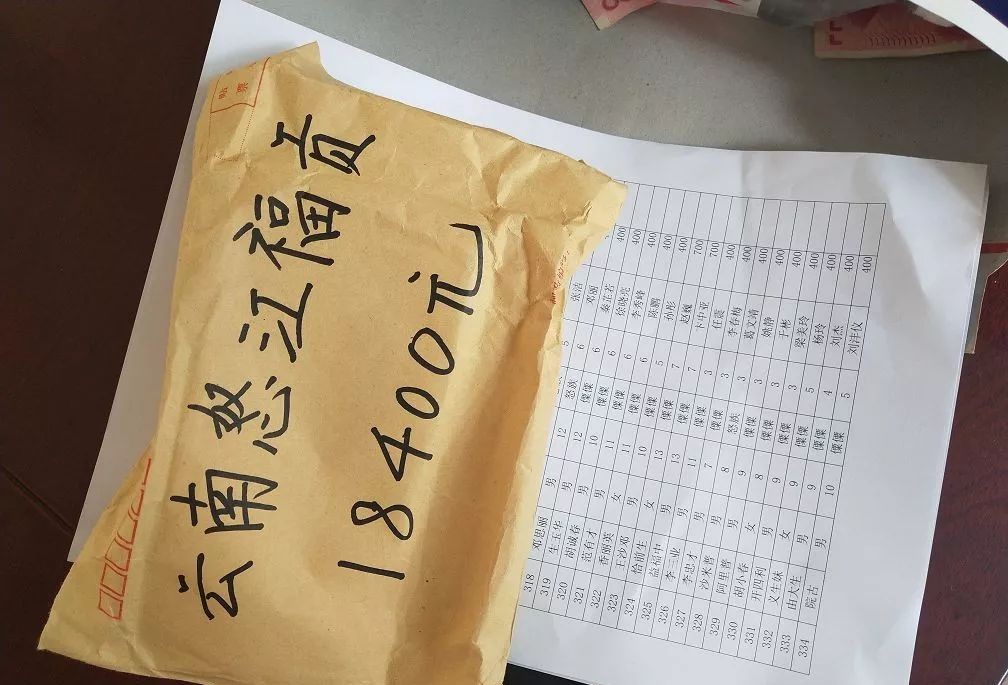 云南怒江福贡
18400元
贴
票
5 张洁
318 邓思丽 男 12 怒族 6 邓丽
319 生玉华 男 12 傈僳 6 秦芷若 400
320 胡诚春 男 10 傈僳 6 徐晓亮 400
321 范有才 男 11 傈僳 6 李秀峰 400
322 香丽英 女 11 傈僳 6 陈鹏 400
323 王沙邓 男 10 傈僳 5 孙彤 400
324 恰前生 女 13 傈僳 7 赵巍 700
325 益福中 男 13 傈僳 7 卞中亚 700
326 李三业 男 11 傈僳 3 任蕊 400
327 李忠才 男 7 傈僳 3 李春梅 400
328 沙米普 男 8 怒族 3 葛文清 400
329 阿里普 男 9 傈僳 3 姚静 400
330 胡小春 女 8 傈僳 3 于彬 400
331 开四利 男 9 傈僳 3 梁美玲 400
332 义生妹 女 9 傈僳 5 杨玲 400
333 由大生 男 9 傈僳 4 刘杰 400
334 院古 男 10 傈僳 5 刘沣仪 400